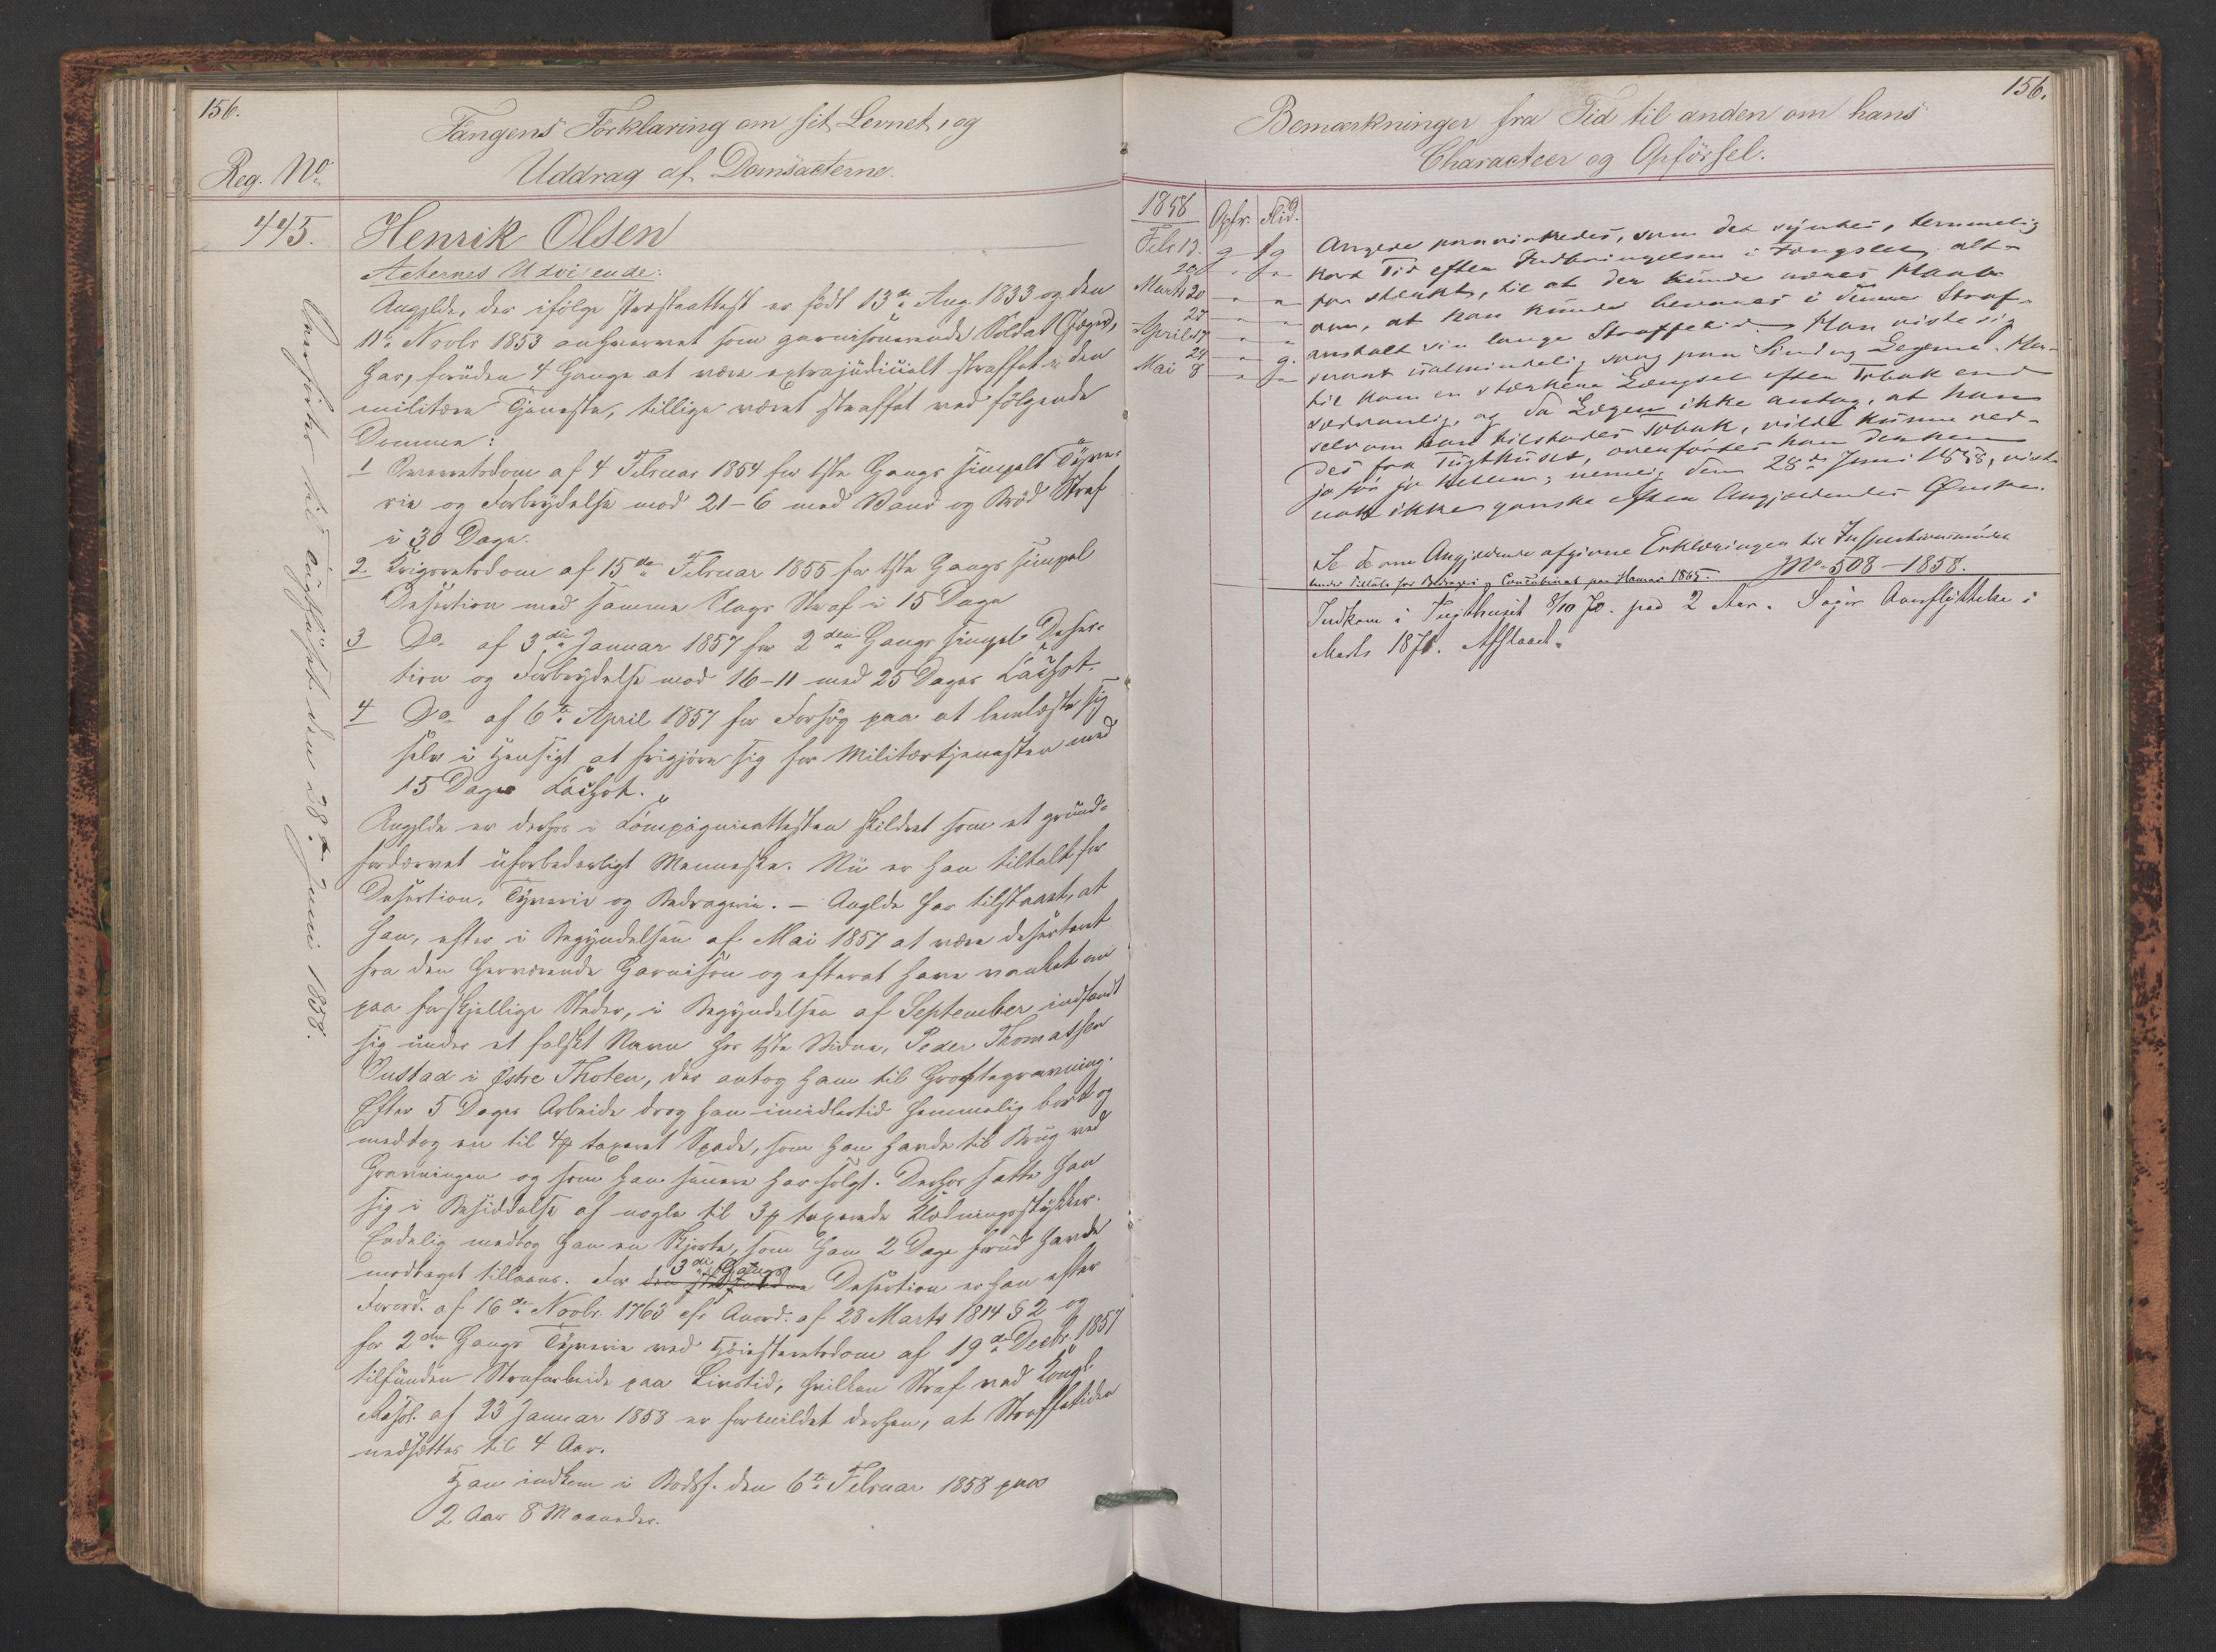 156.
Reg. No
Fangens Forklaring om sit Levnet, og
Uddrag af Domsacterne.
445.
Henrik Olsen
Acternes Udvisende:
Angjldte, der ifölge Præsteattest er född 13de Aug. 1833 og den
11te Novbr 1853 anhvervet som garnisonerende Soldat (Jæger),
har, foruden 4 Gange at være extrajudicialt straffet i den
militære Tjeneste, tillige været straffet ved fölgende
Domme:
1 Overretsdom af 4 Februar 1854 for 1ste Gangs simpelt Tyve-
rie og Forbrydelse mod 21-6 med Vand og Bröd Straf
i 30 Dage.
2. Krigsretsdom af 15de Februar 1855 for 1ste Gangs simpel
Desertion med samme Slags Straf i 15 Dage
3 Do af 3die Januar 1857 for 2den Gangs simpel Deser-
tion og Forbrydelse mod 16-11 med 25 Dages Cachot.
4 Do af 6te April 1857 for Forsög paa at lemlæste sig
selv i Hensigt at frigjöre sig for Militærtjenesten med
15 Dages Cachot.
Angjldte er derhos i Compagnieattesten skildret som et grund-
fordærvet uforbederligt Menneske. Nu er han tiltalt for
Desertion, Tyverie og Bedragerie. — Angjldte har tilstaaet, at
han, efter i Begyndelsen af Mai 1857 at være deserteret
fra den herværende Garnison og efterat have vanket om
paa forskjellige Steder, i Begyndelsen af September indfandt
sig under et falskt Navn hos 1ste Vidne, Peder Thomassen
i Östre Thoten, der antog ham til Gröftegravning.
Efter 5 Dages Arbeide drog han imidlertid hemmelig bort og
medtog en til taxeret Spade, som han havde til Brug ved
Gravningen og som han senere har solgt. Derhos satte han
sig i Besiddelse af nogle til taxerede Klædningsstykker.
Endelig medtog han en Skjorte, som han 2 Dage forud havde
modtaget tillaans. For 3die Gangs Desertion er han efter
Forord. af 16de Novbr. 1763 cfr Anord. af 28 Marts 1814 § 2 og
for 2den Gangs Tyverie ved Höiesteretsdom af 19de Decbr. 1857
tilfunden Strafarbeide paa Livstid, hvilken Straf ved Kongl.
Resol. af 23 Januar 1858 er formildet derhen, at Straffetiden
nedsættes til 4 Aar.
Han indkom i Bodsf. den 6te Februar 1858 paa
2 Aar 8 Maaneder.
Overförtes til Tugthuset den 28de Juni 1858.
156.
Bemærkninger fra Tid til anden om hans
Characteer og Opförsel.
1858 Opfr. Flid.
Febr 13. g g
20 " "
Marts 20 " "
27 " "
April 17 " "
24 " g.
Mai 8 " "
Angrede paavirkedes, som det syntes, temmelig
kort Tid efter Indbringelsen i Fængslet alt-
for stærkt, til at der kunde være Haab
om, at han kunde bevares i denne Straf-
anstalt sin lange Straffetid. Han viste sig
ualmindelig svag paa Sind og Legeme. Her-
til kom en stærkere Længsel efter Tobak end
sædvanlig, og da Lægen ikke antog, at han
selv om han tilstodes Tobak, vilde kunne red-
des fra Tugthuset, overförtes han derhen
jo för jo heller, nemlig den 28de Juni 1858, vist-
nok ikke ganske efter Angjældendes Önske.
Se de om Angjældende afgivne Erklæringer til Inspectionsmödet
No 508-1858.
under Tiltale for Bedrageri og Concubinat paa Hamar 1865.
Indkom i Tugthuset 8/10 70. paa 2 Aar. Söger Overflyttelse i
Marts 1871. Afslaaet.